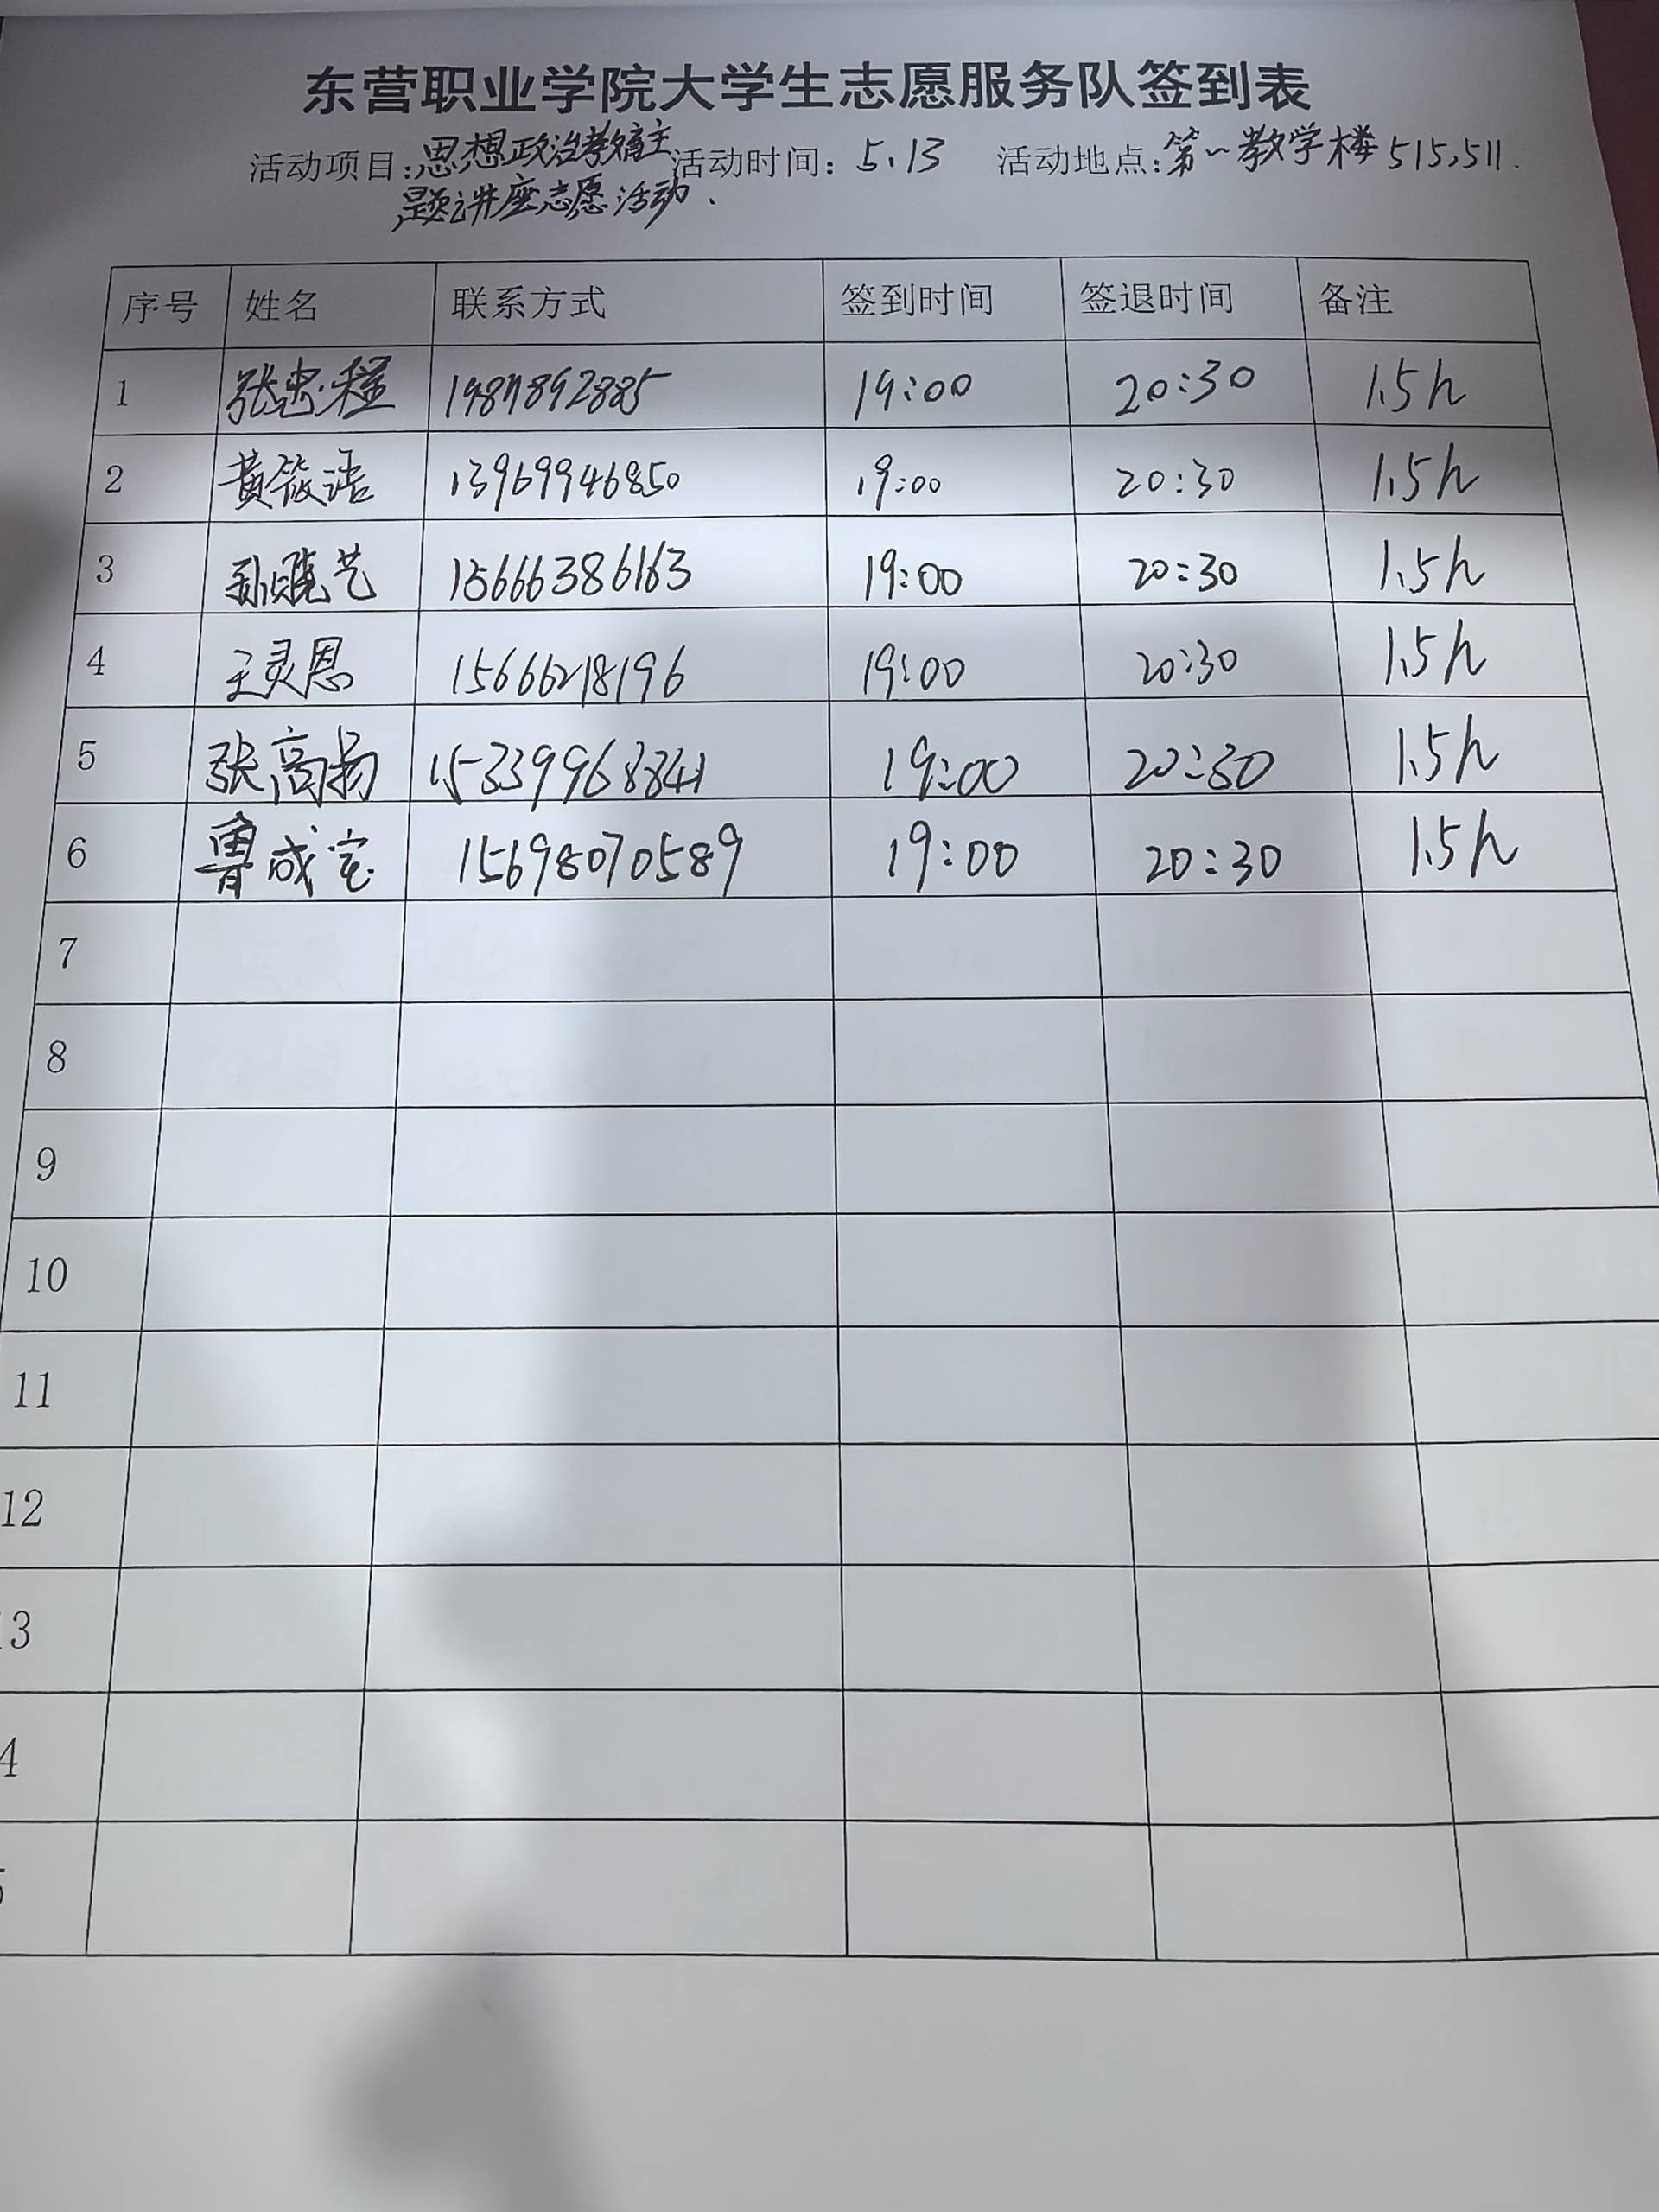 东营职业学院大学生志愿服务队签到表
活动项目:思想政治教育主 活动时间: 5.13 活动地点:第一教学楼515,511.
题讲座志愿活动.
序号 姓名 联系方式 签到时间 签退时间 备注
1 张忠程 19:00 20:30 1.5h
2 黄筱语 13969946850 19:00 20:30 1.5h
3 孙晓艺 15666386163 19:00 20:30 1.5h
4 王灵恩 15666218196 19:00 20:30 1.5h
5 张高扬 15339968841 19:00 20:30 1.5h
6 鲁成宝 15698070589 19:00 20:30 1.5h
7
8
9
10
11
12
13
4
5